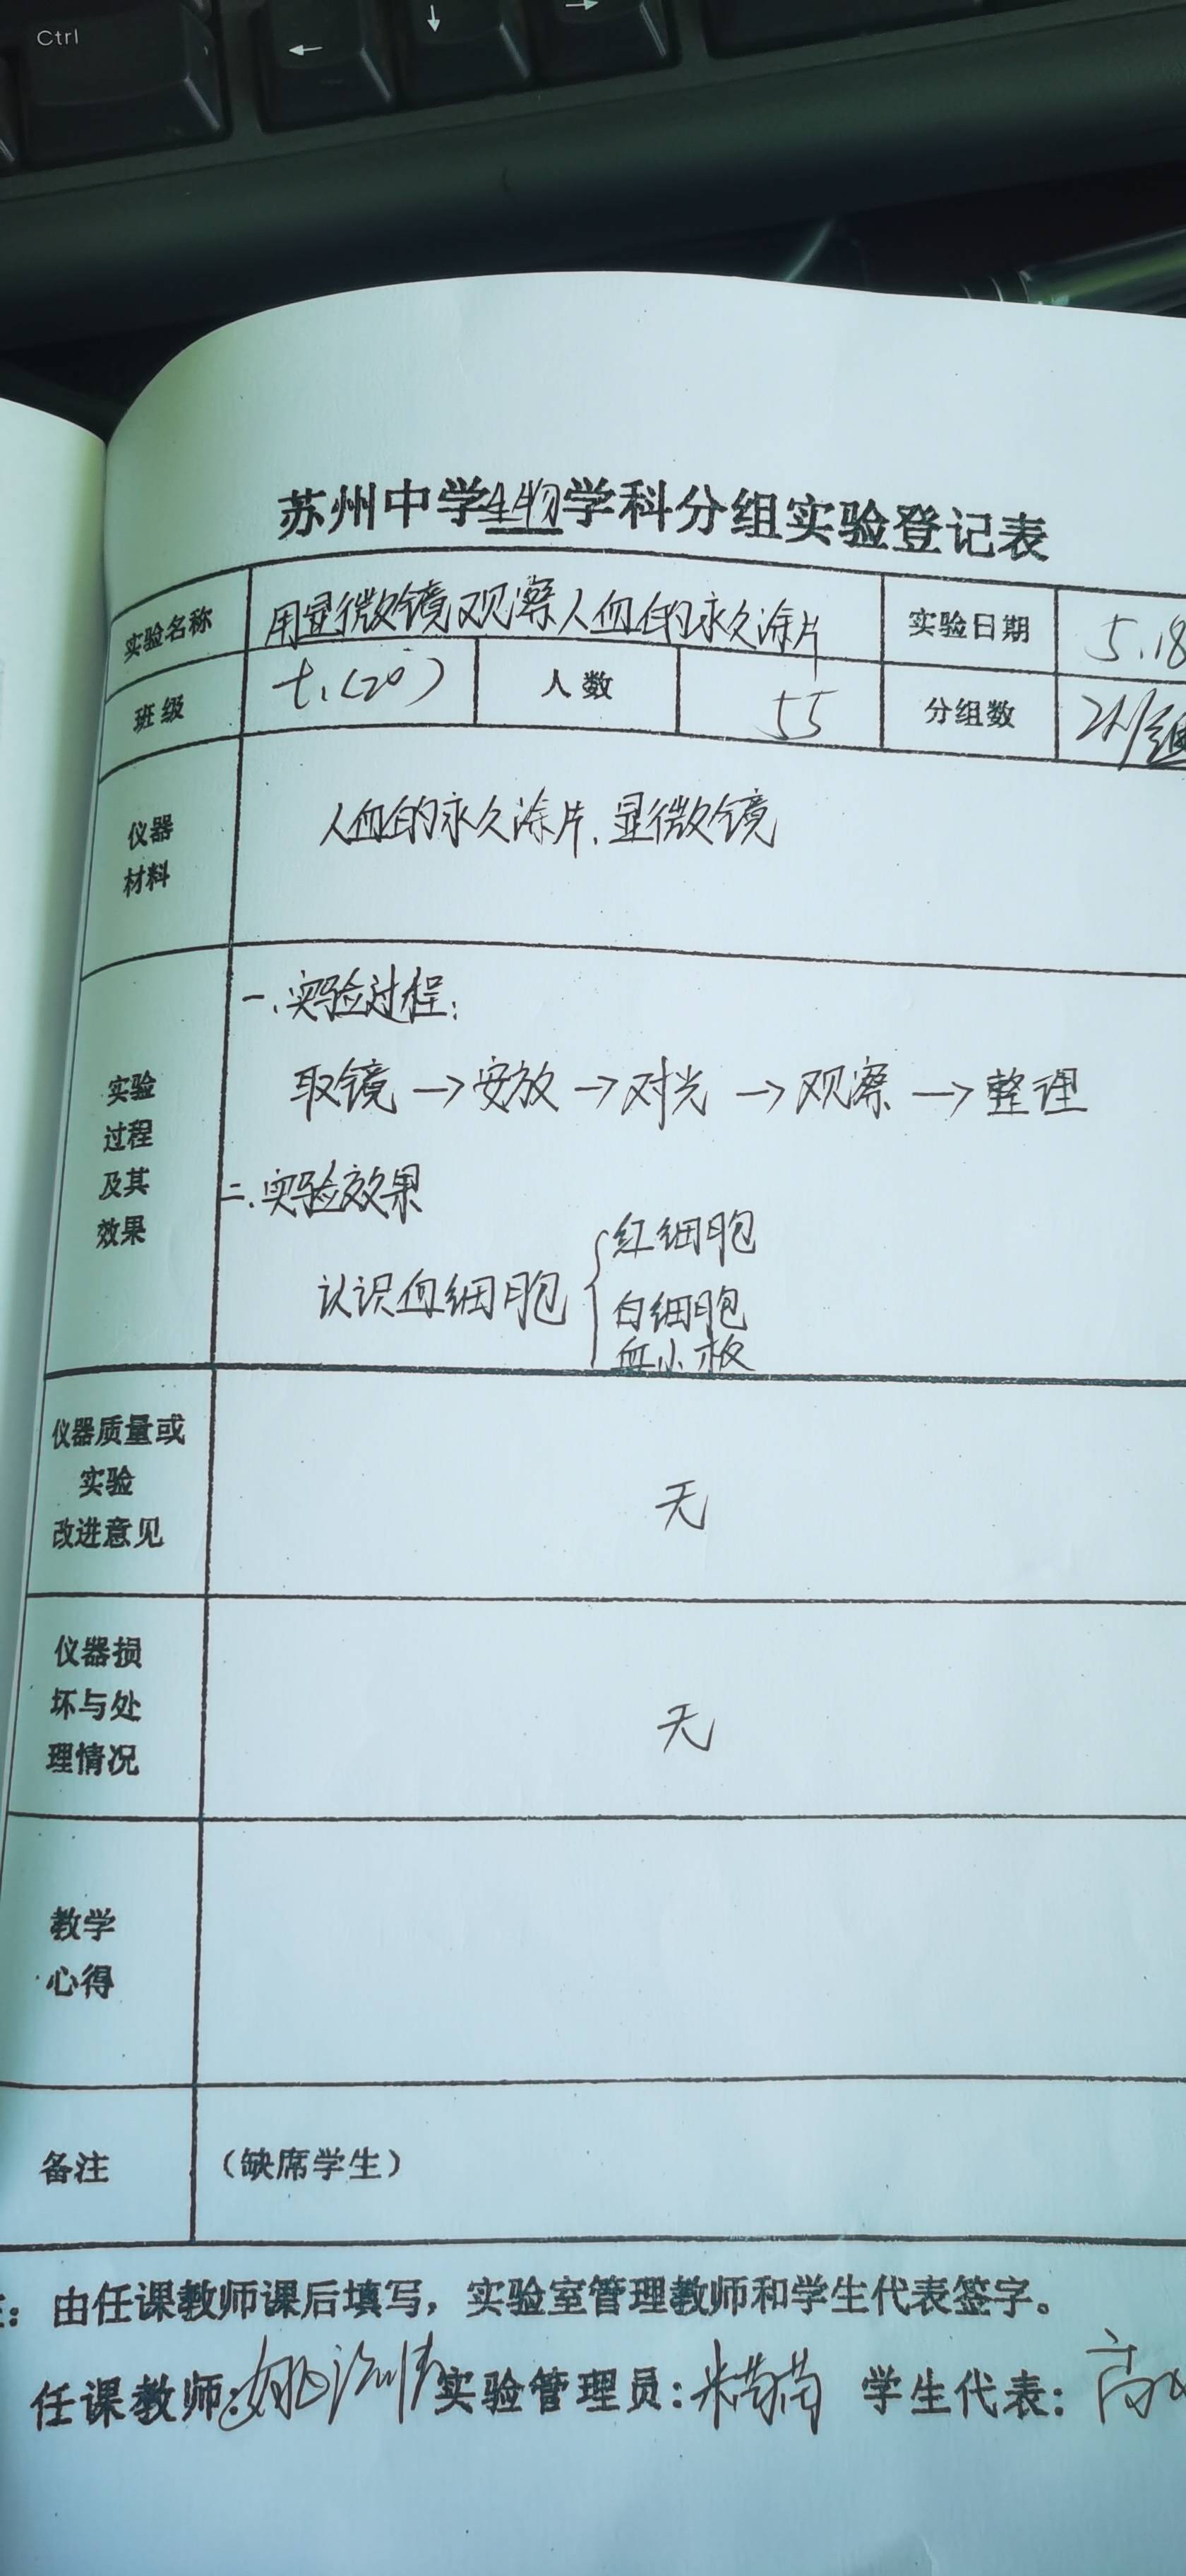 Ctrl
←
↓
→
苏州中学生物学科分组实验登记表
实验名称 用显微镜观察人血的永久涂片 实验日期 5.18
班级 七.(20) 人数 55 分组数 2人/组
仪器材料 人血的永久涂片.显微镜
一.实验过程:
取镜→安放→对光→观察→整理
实验过程及其效果
二.实验效果
认识血细胞
红细胞
白细胞
血小板
仪器质量或
实验
改进意见
无
仪器损
坏与处
理情况
无
教学
心得
备注 (缺席学生)
: 由任课教师课后填写，实验室管理教师和学生代表签字。
任课教师: 实验管理员: 学生代表: 高